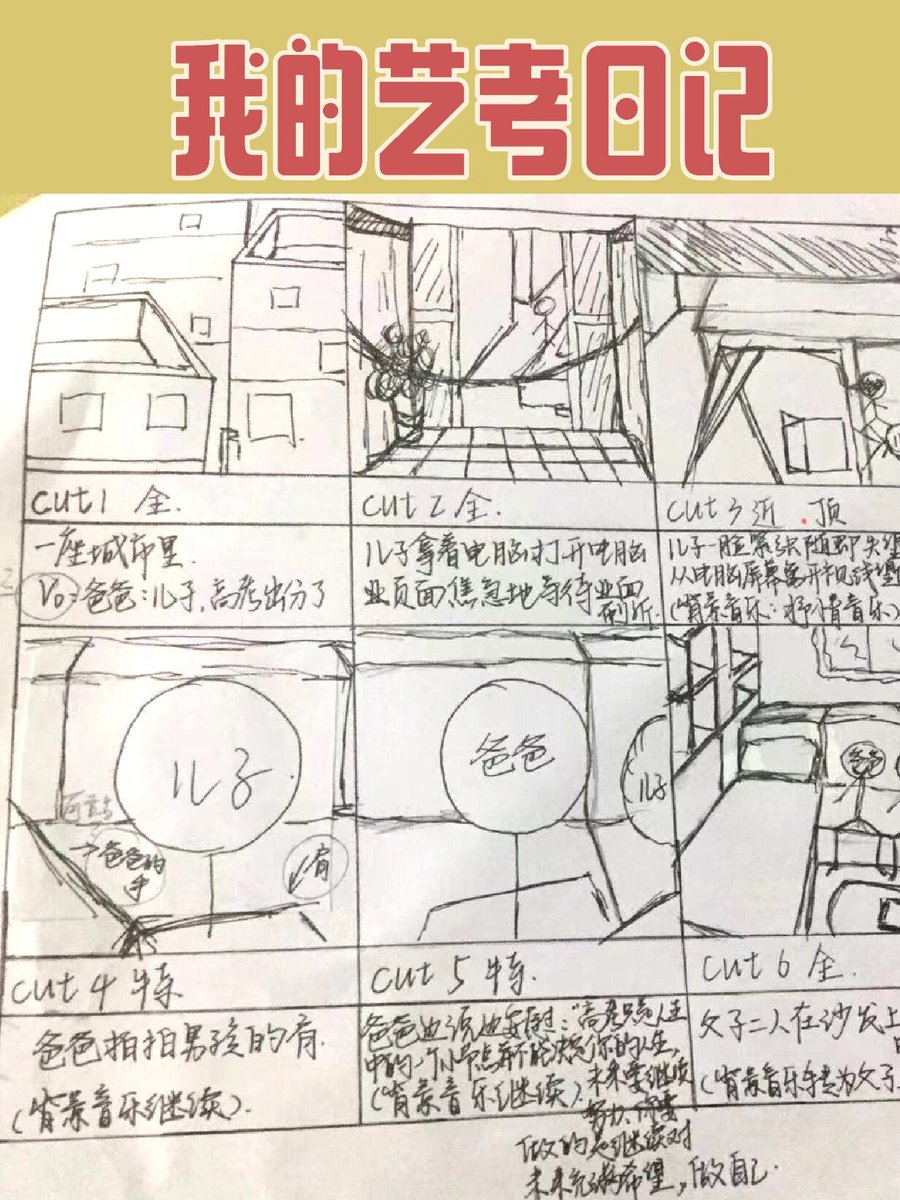 我的艺考日记
cut1 全.
cut2 全.
cut3近 .顶
一座城市里
Vo:爸爸:儿子,高考出分了
儿子拿着电脑打开电脑
业页面焦急地等待业面
刷新
儿子一脸紧张随即失望
从电脑屏幕离开视线
(背景音乐:抒情音乐)
儿子
爸爸的
手
肩
爸爸
儿子
爸爸
cut4 特.
cut5 特.
cut6 全.
爸爸拍拍男孩的肩.
(背景音乐继续).
爸爸边说边安慰:"高考只是人生
中的一个小节点并不能决定你的人生,
未来要继续
努力,需要
(背景音乐继续)
做的是继续对
未来充满希望,做自己.
父子二人在沙发上
(背景音乐转为父子